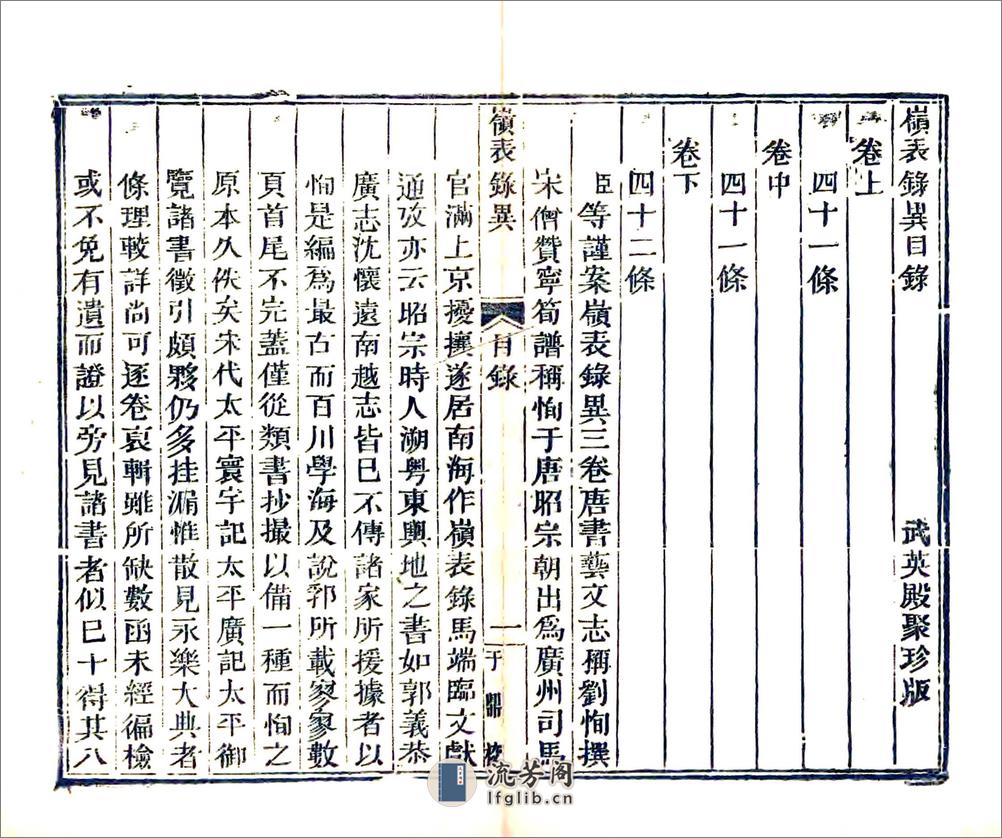 嶺表錄異目錄　武英殿聚珍版
卷上
四十一條
卷中
四十一條
卷下
四十二條
臣等謹案嶺表錄異三卷唐書藝文志稱劉恂撰
宋僧贊寧筍譜稱恂于唐昭宗朝出爲廣州司馬
嶺表錄異　目錄　一　于鼎校
官滿上京擾攘遂居南海作嶺表錄馬端臨文獻
通攷亦云昭宗時人溯粤東輿地之書如郭義恭
廣志沈懷遠南越志皆巳不傳諸家所援據者以
恂是編爲最古而百川學海及說郛所載寥寥數
頁首尾不完蓋僅從類書抄撮以備一種而恂之
原本久佚矣宋代太平寰宇記太平廣記太平御
覽諸書徵引頗夥仍多挂漏惟散見永樂大典者
條理較詳尚可逐卷裒輯雖所缺數函未經徧檢
或不免有遺而證以旁見諸書者似巳十得其八
流芳阁
lfglib.cn